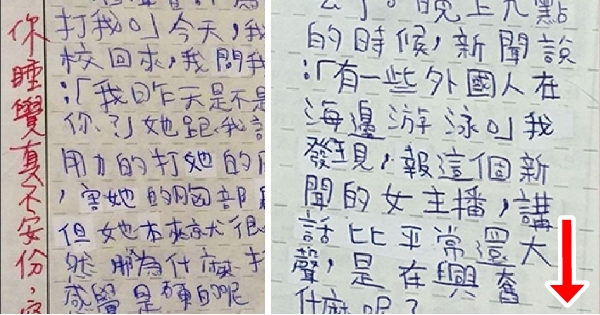 你睡覺真不安份,
打我。」今天,我
校回來,我問我
:「我昨天是不是
你?」她跟我說
用力的打她的
,害她的胸部
但她本來就很
然 那為什麼
感覺是硬的呢
晚上九點
的時候,新聞說
:「有一些外國人在
海邊游泳。」我
發現,報這個新
聞的女主播,講
話比平常還大
聲,是在興奮
什麼呢?